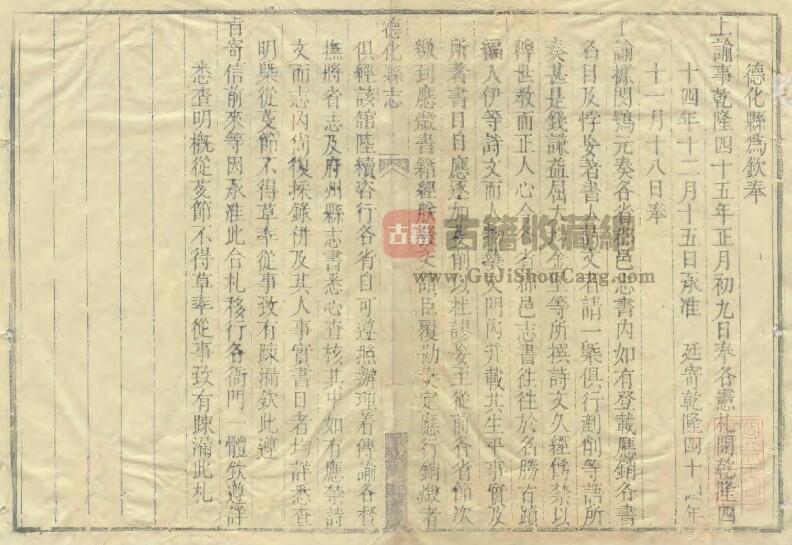 德化縣爲欽奉
上諭事乾隆四十五年正月初九日奉各憲札開乾隆四
十四年十二月十五日承准 廷寄乾隆四十四年
十一月十八日奉
上諭據閔鶚元奏各省郡邑志書內如有登載應銷各書
名目及悖妄著書人詩文者請一槩俱行剷削等語所
奏甚是錢謙益屈大均金堡等所撰詩文久經飭禁以
裨世教而正人心今各省郡邑志書往往於名勝古蹟
編入伊等詩文而人物藝文門內并載其生平事實及
所著書目自應逐加芟削以杜謬妄至從前各省節次
繳到應燬書籍經朕
臣覆勘奏定應行銷燬者
德化縣志
俱經該館陸續咨行各省自可遵照辦理着傳諭各督
撫將省志及府州縣志書悉心查核其中如有應禁詩
文而志內尚復採錄併及其人事實書目者均詳悉查
明槩從芟節不得草率從事致有踈漏欽此遵
旨寄信前來等因承准此合札移行各衙門一體欽遵詳
悉查明概從芟節不得草率從事致有踈漏此札
古籍
古籍收藏網
www.GuJiShouCang.com